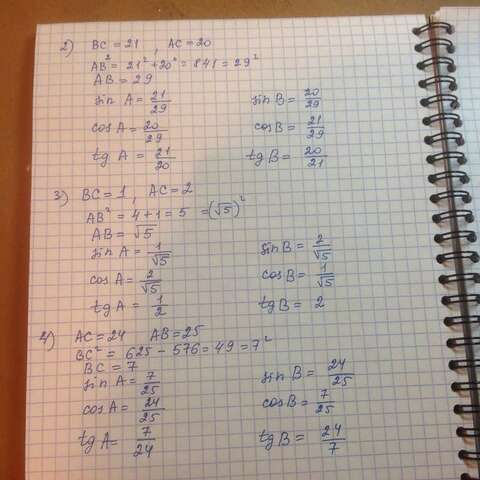 2) BC = 21 , AC = 20
AB² = 21² + 20² = 841 = 29²
AB = 29
sin A = 21/29 sin B = 20/29
cos A = 20/29 cos B = 21/29
tg A = 21/20 tg B = 20/21
3) BC = 1, AC = 2
AB² = 4 + 1 = 5 = (√5)²
AB = √5
sin A = 1/√5 sin B = 2/√5
cos A = 2/√5 cos B = 1/√5
tg A = 1/2 tg B = 2
4) AC = 24 AB = 25
BC² = 625 - 576 = 49 = 7²
BC = 7
sin A = 7/25 sin B = 24/25
cos A = 24/25 cos B = 7/25
tg A = 7/24 tg B = 24/7